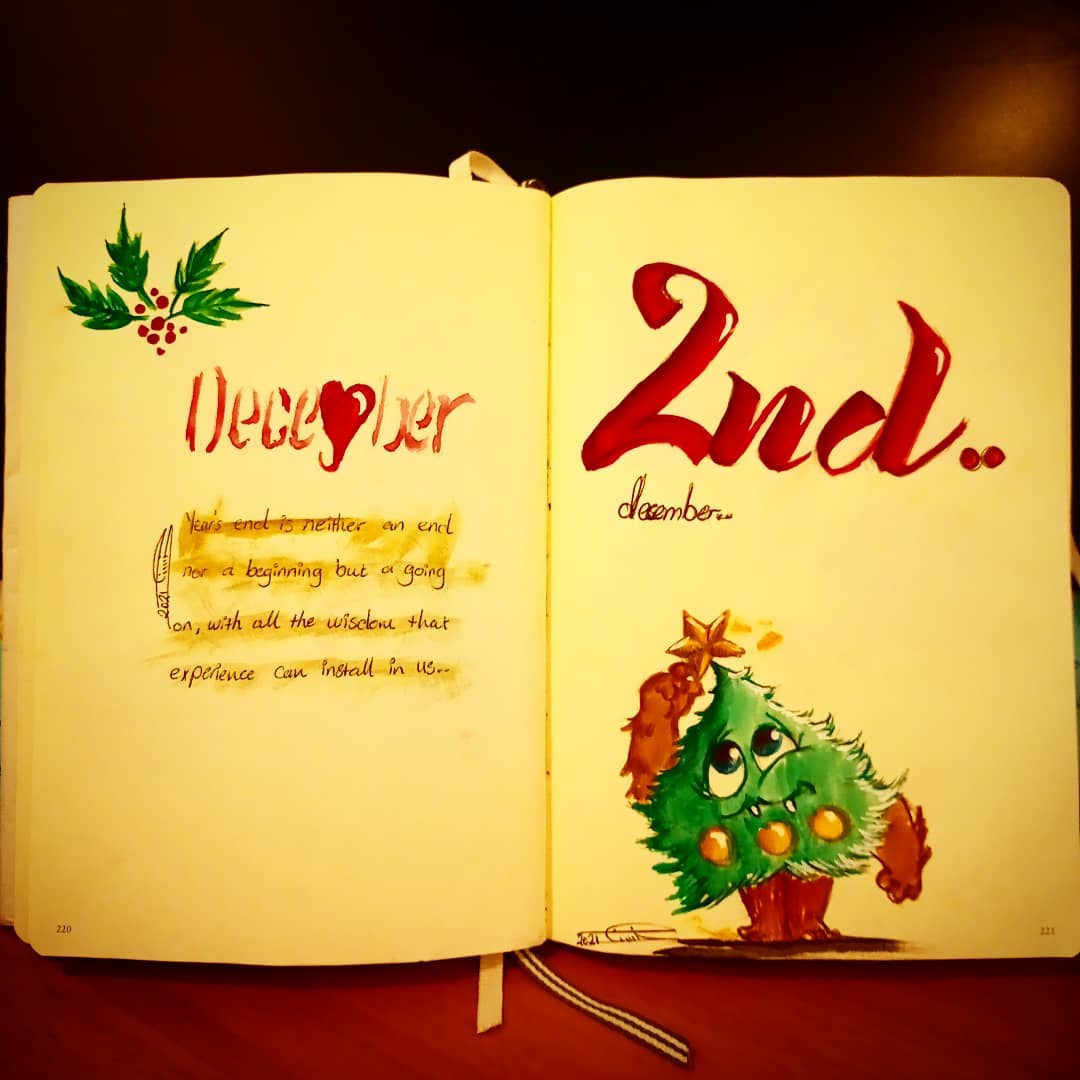 December
Year's end is neither an end
nor a beginning but a going
on, with all the wisdom that
experience can install in us...
2021
220
2nd..
december...
2021
221